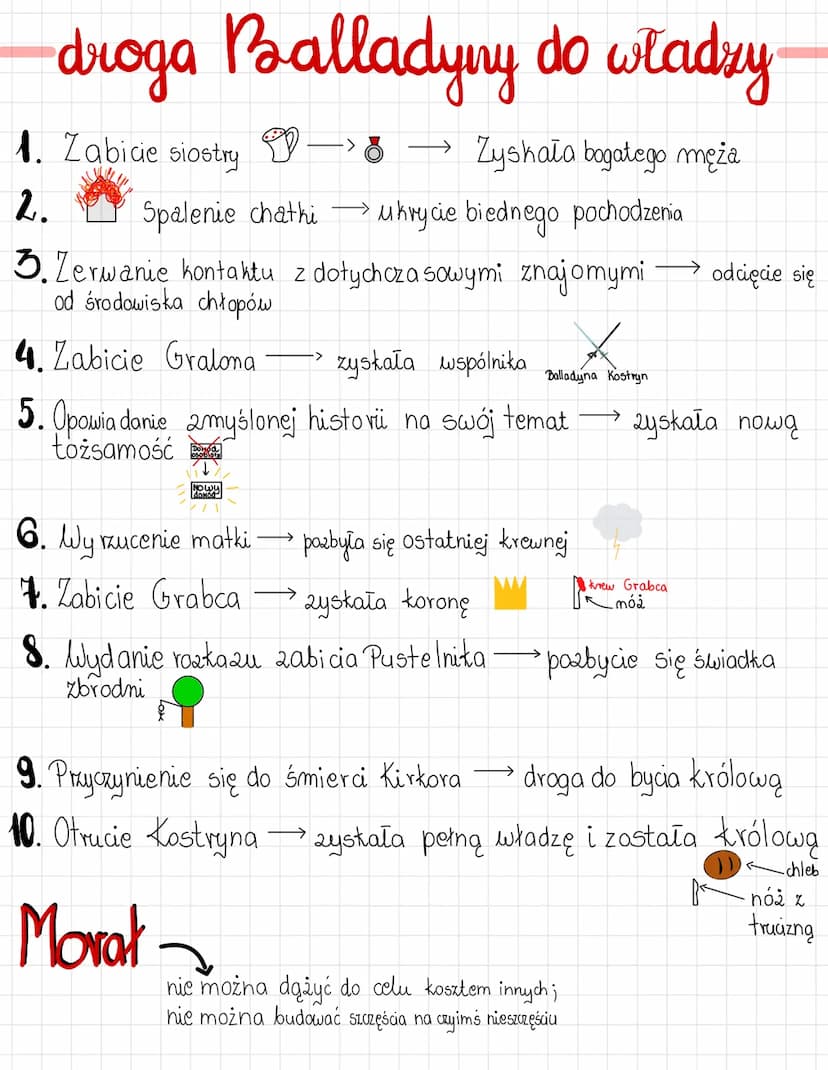 droga Balladyny do władzy
1. Zabicie siostry → → Zyskała bogatego męża
2. Spalenie chatki → ukrycie biednego pochodzenia
3. Zerwanie kontaktu z dotychczasowymi znajomymi → odcięcie się
od środowiska chłopów
4. Zabicie Gralona → zyskała wspólnika
Balladyna Kostryn
5. Opowiadanie zmyślonej historii na swój temat → zyskała nową
tożsamość
NOWY
DOWÓD
6. Wyrzucenie matki → pozbyła się ostatniej krewnej
7. Zabicie Grabca → zyskała koronę
krew Grabca
nóż
8. Wydanie rozkazu zabicia Pustelnika → pozbycie się świadka
zbrodni
9. Przyczynienie się do śmierci Kirkora → droga do bycia królową
10. Otrucie Kostryna → zyskała pełną władzę i została królową
chleb
nóż z
trucizną
Morał
nie można dążyć do celu kosztem innych;
nie można budować szczęścia na czyimś nieszczęściu